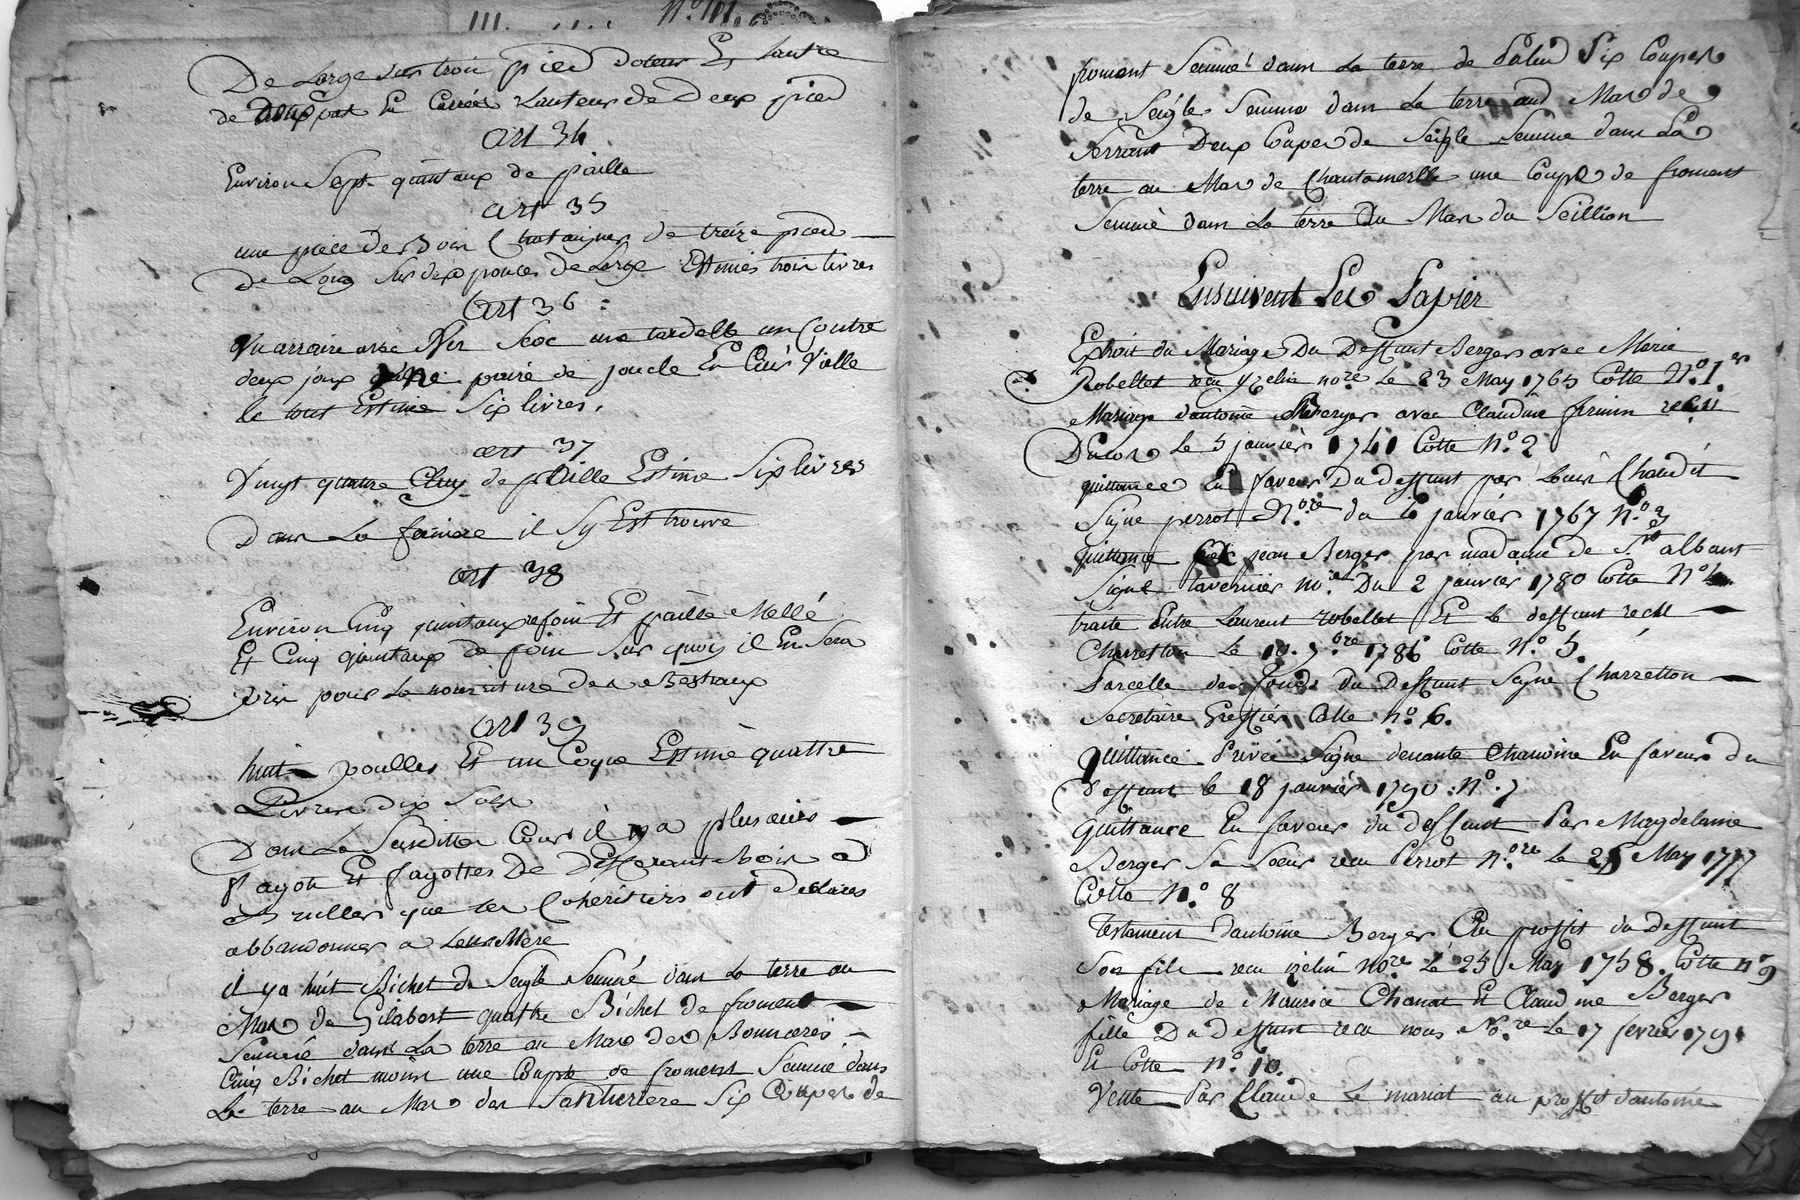 III. N.º 111
De Large sur trois pied doteur Et Lautre
de pas En Carrés Lauteur de Deux pied
art 34
Environ Sept quintaux de paille
art 35
une piece de Bois Chataigner de treize pied
De Long sur dix pouces de Large Estimés trois livres
art 36
Un arraire avec Son Seoc une tardelle un Coutre
deux joux paire de joucle En Cuir Vielle
le tout Estimé Six livres.
art 37
Vingt quatre Cluy de paille Estime Six livres
Dans La feniere il Sy Est trouvé
art 38
Environ Cinq quintaux refoin Et paille Mellé
Et Cinq quintaux de foin Sur quoy il En Sera
pris pour La nourriture des Bestiaux
art 39
huit poulles Et un Coque Estimé quattre
Livres dix Sols
Dans La Suseditte Cour il y a plusieurs
fagots Et fagottes De Different Bois a
Bruller que les Coheritiers ont Declares
abbandonner a Leur Mere
il y a huit Bichet de Segle Semmé dans La terre au
Mas de Gilabert quattre Bichet de froment
Semmé dans La terre au Mas des
Cinq Bichet moins une Coupe de froment Semmé dans
La terre au Mas des Six Coupes de
froment Semmé dans La terre de Palu Six Coupes
de Seigle Semmé dans La terre aud Mas de
Serrant Deux Coupes de Seigle Semme dans La
terre au Mas de Chantemerlle une Coupe de froment
Semmé dans La terre Du Mas du Seillion
Ensuivent Les Papier
Extrait du Mariage Du Deffunt Berger avec Marie
Robellet recu Yzelin nore Le 23 May 1765 Cotte N.º 1.er
Mariage dantoine Berger avec Claudine firmin recu
Le 5 janvier 1741 Cotte N.º 2
quittance En faveur Du deffunt par Louis Chaudit
Signe perrot N.ore du 10 janvier 1767 N.º 3
quittance jean Berger par madame de St albant
Signe tavernier no.re Du 2 janvier 1780 Cotte N.º 4
traite Entre Laurent robellet Et Le deffunt recu
Charretton Le 10. 7.bre 1786 Cotte N.º 5.
Parcelle des fonds du Deffunt Signe Charretton
Secretaire Greffier Cotte n.º 6.
Quittance Privée Signe Chanoine En faveur du
Deffunt le 18 janvier 1790. N.º 7
Quittance En faveur du deffunt Par Magdelaine
Berger Sa Soeur recu Perrot N.ore Le 25 May 1777
Cotte N.º 8
Testament dantoine Berger Au proffit du deffunt
Son fils recu izelin nore Le 25 May 1758. Cotte n.º 9
Mariage de Maurice Chanat Et Claudine Berger
fille Du deffunt recu nous No.re Le 17 fevrier 1791
Et Cotte N.º 10.
Vente Par Claude Le mariat au proffit dantoine